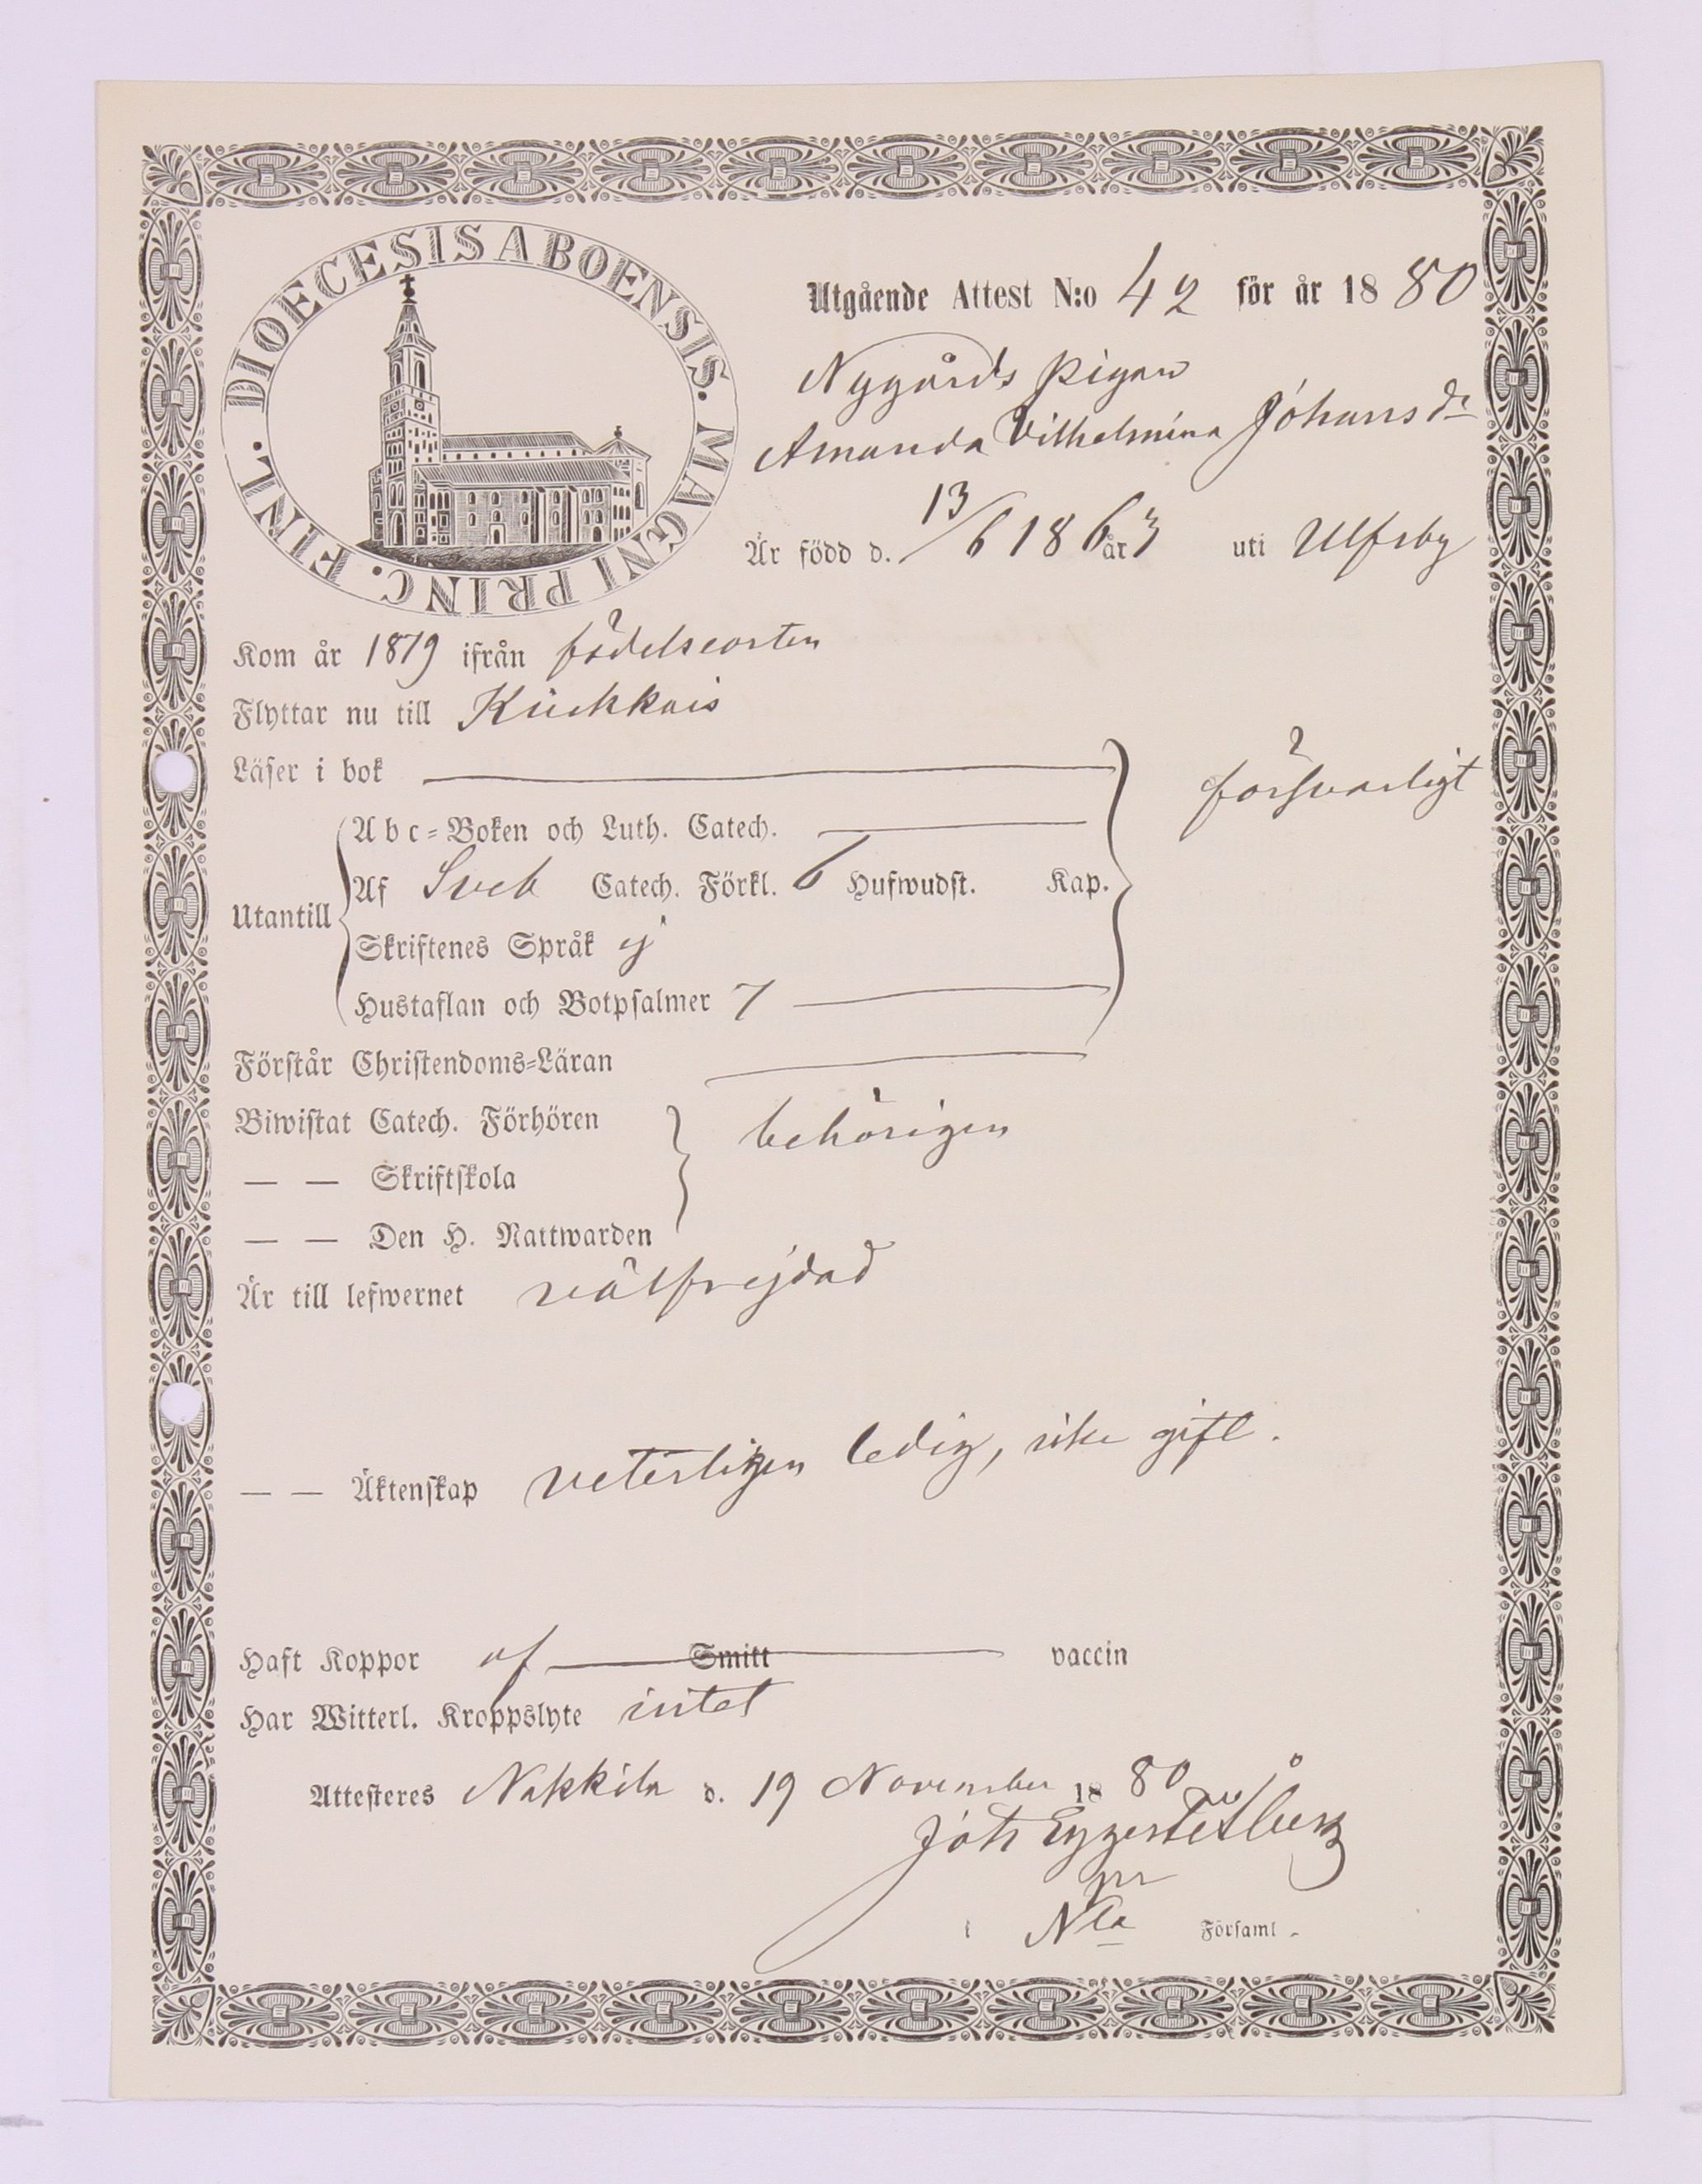 DIOECESIS ABOENSIS. MAGNI PRINC. FINL.
Utgående Attest N:o 42 för år 1880
Nygårds pigan
Amanda Vilhelmina Johansdr
Är född d. 13/6 1863 år uti Ulfsby
Kom år 1879 ifrån födelseorten
Flyttar nu till
Läser i bok
försvarligt
Abc=Boken och Luth. Catech.
Utantill
Af Sveb Catech. Förkl. 6 Hufwudst. Kap.
Skriftenes Språk ej
Hustaflan och Botpsalmer 7
Förstår Christendoms=Läran
Biwistat Catech. Förhören
behörigen
— — Skriftskola
— — Den H. Nattwarden
Är till lefwernet välfrejdad
— — Äktenskap veterligen ledig, icke gift.
Haft Koppor af Smitt vaccin
Har Witterl. Kroppslyte intet
Attesteres Nakkila d. 19 November 1880
i Nla Församl.